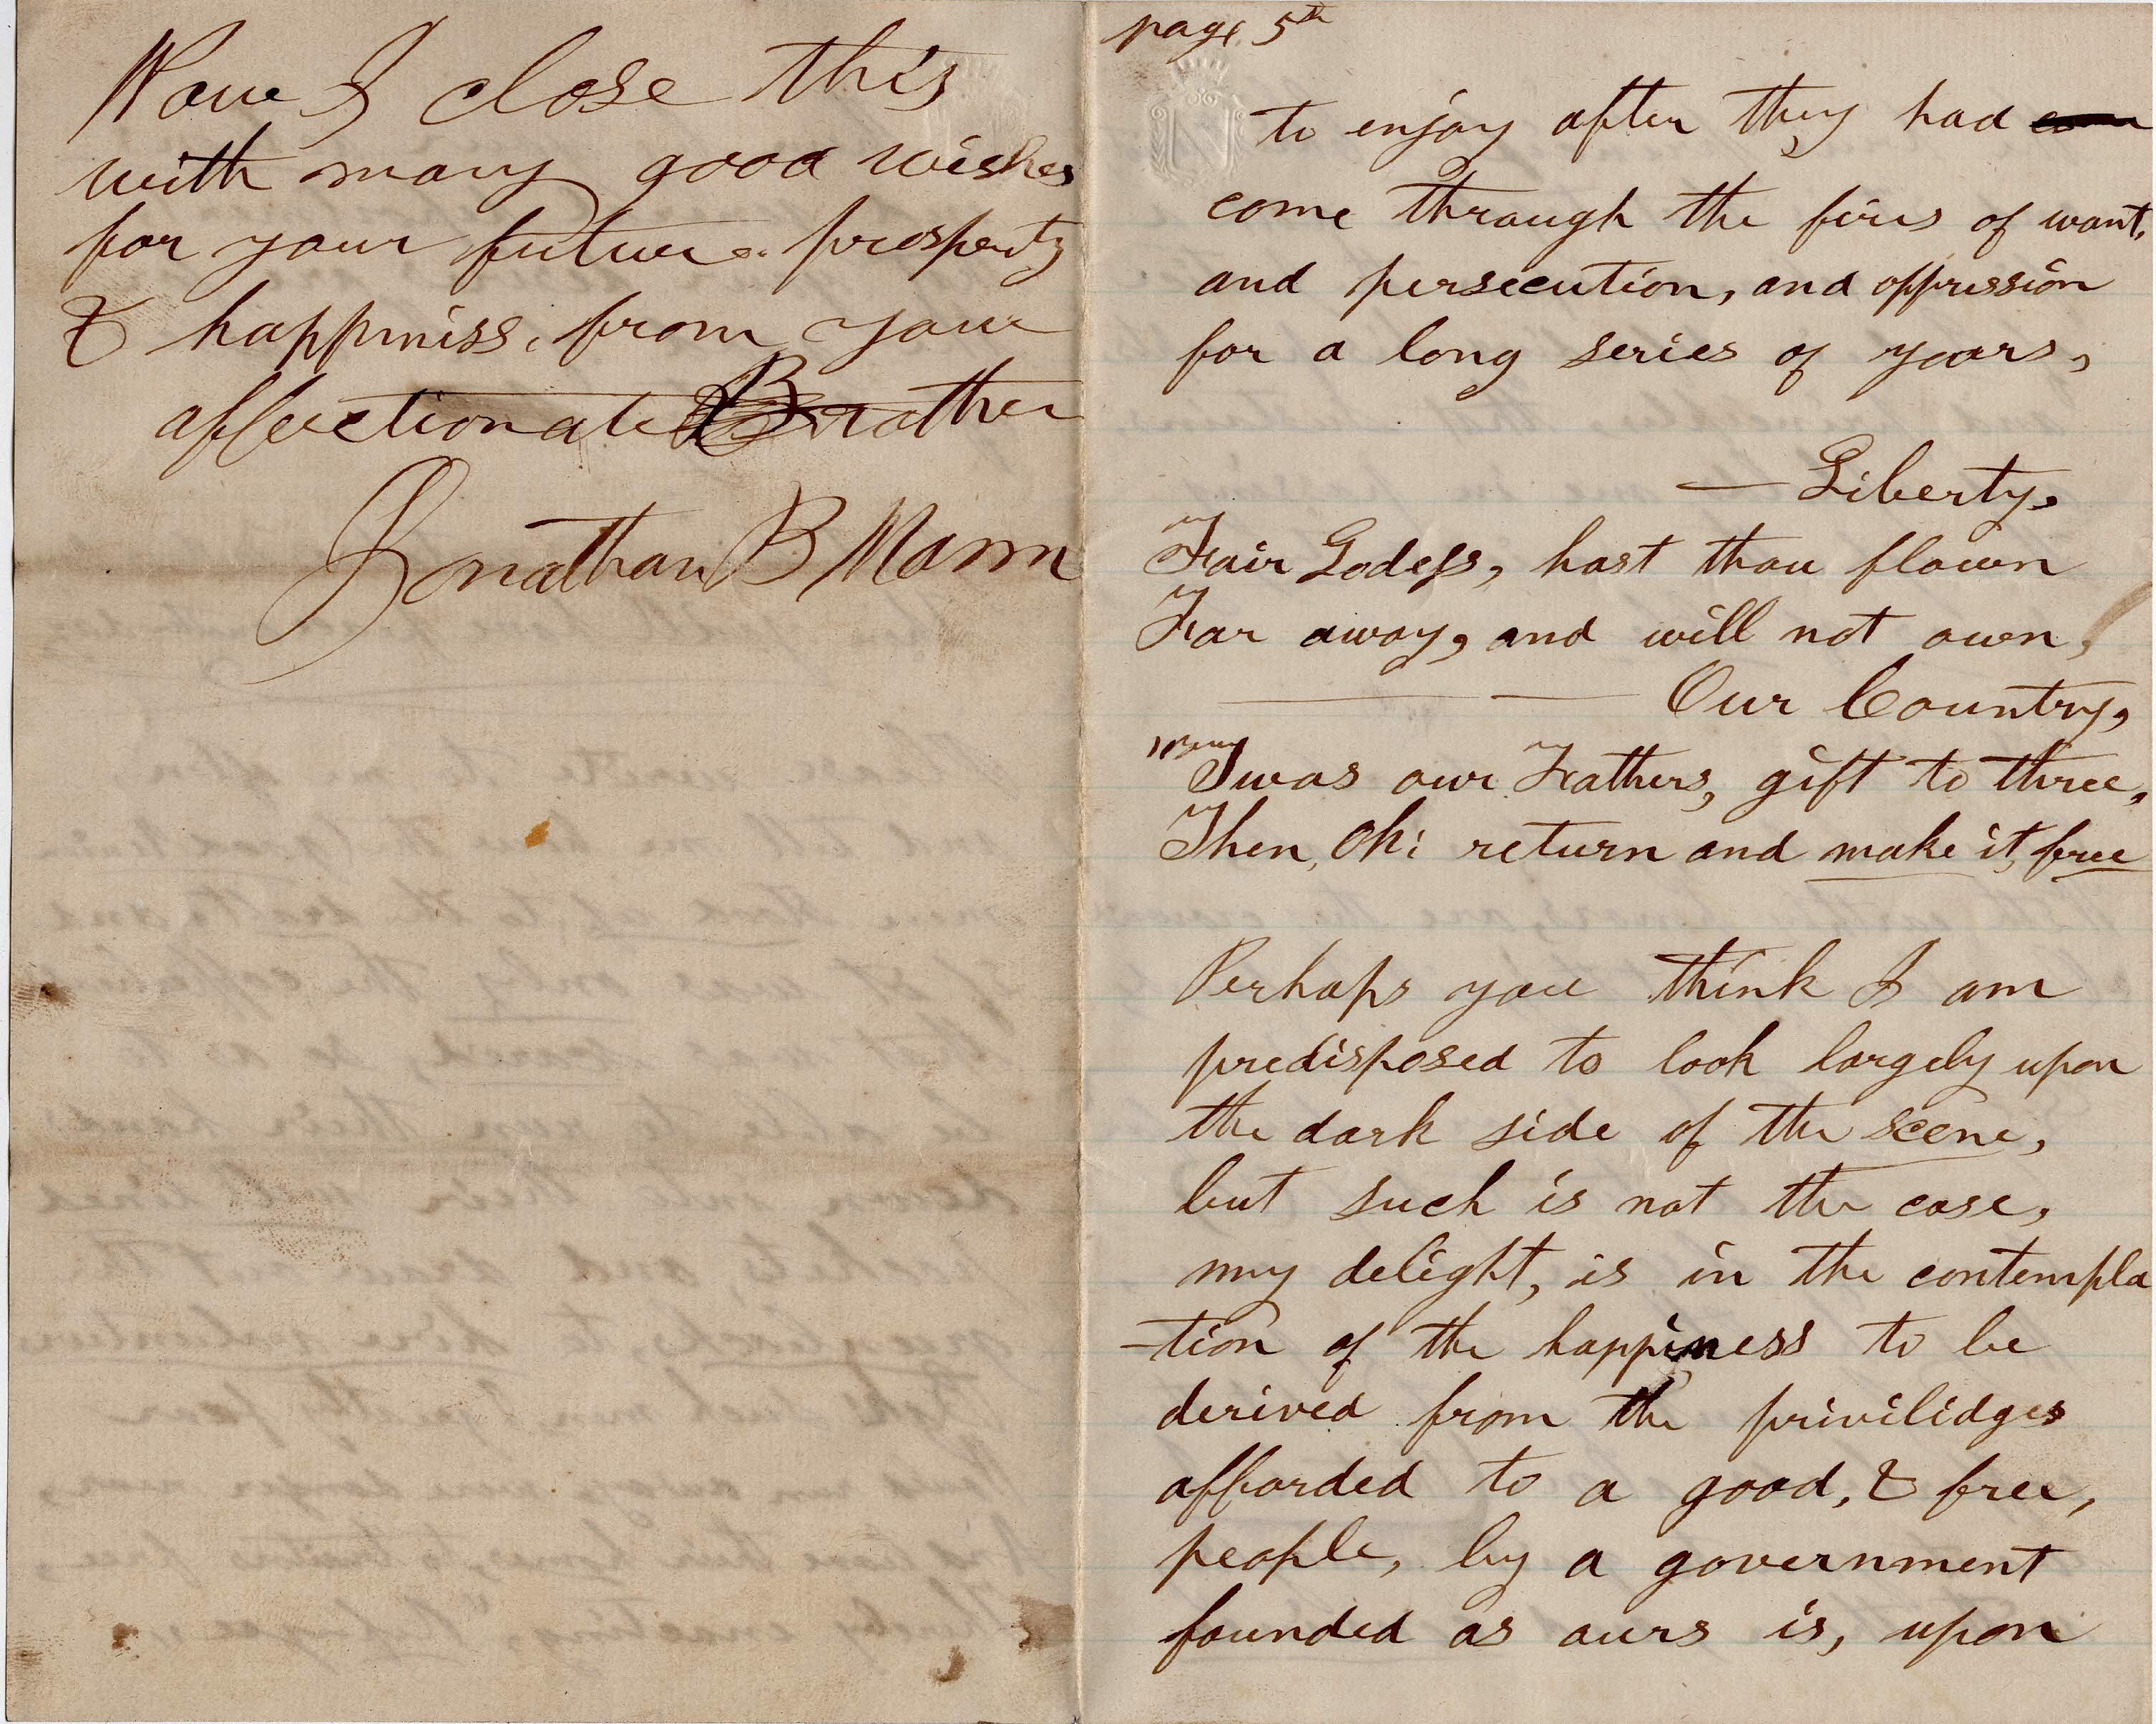 Now I close this
with many good wishes
for your future prosperity
& happiness, from your
affectionate Brother
Jonathan B Mann
page 5th
to enjoy after they had
come through the fires of want,
and persecution, and oppression
for a long series of years,
— Liberty,
Fair Godess, hast thou flown
Far away, and will not own,
— — Our Country,
Twas our Fathers, gift to three,
Then, Oh; return and make it, free
Perhaps you think I am
predisposed to look largely upon
the dark side of the scene,
but such is not the case,
my delight, is in the contempla
-tion of the happiness to be
derived from the privilidges
afforded to a good, & free,
people, by a government
founded as ours is, upon